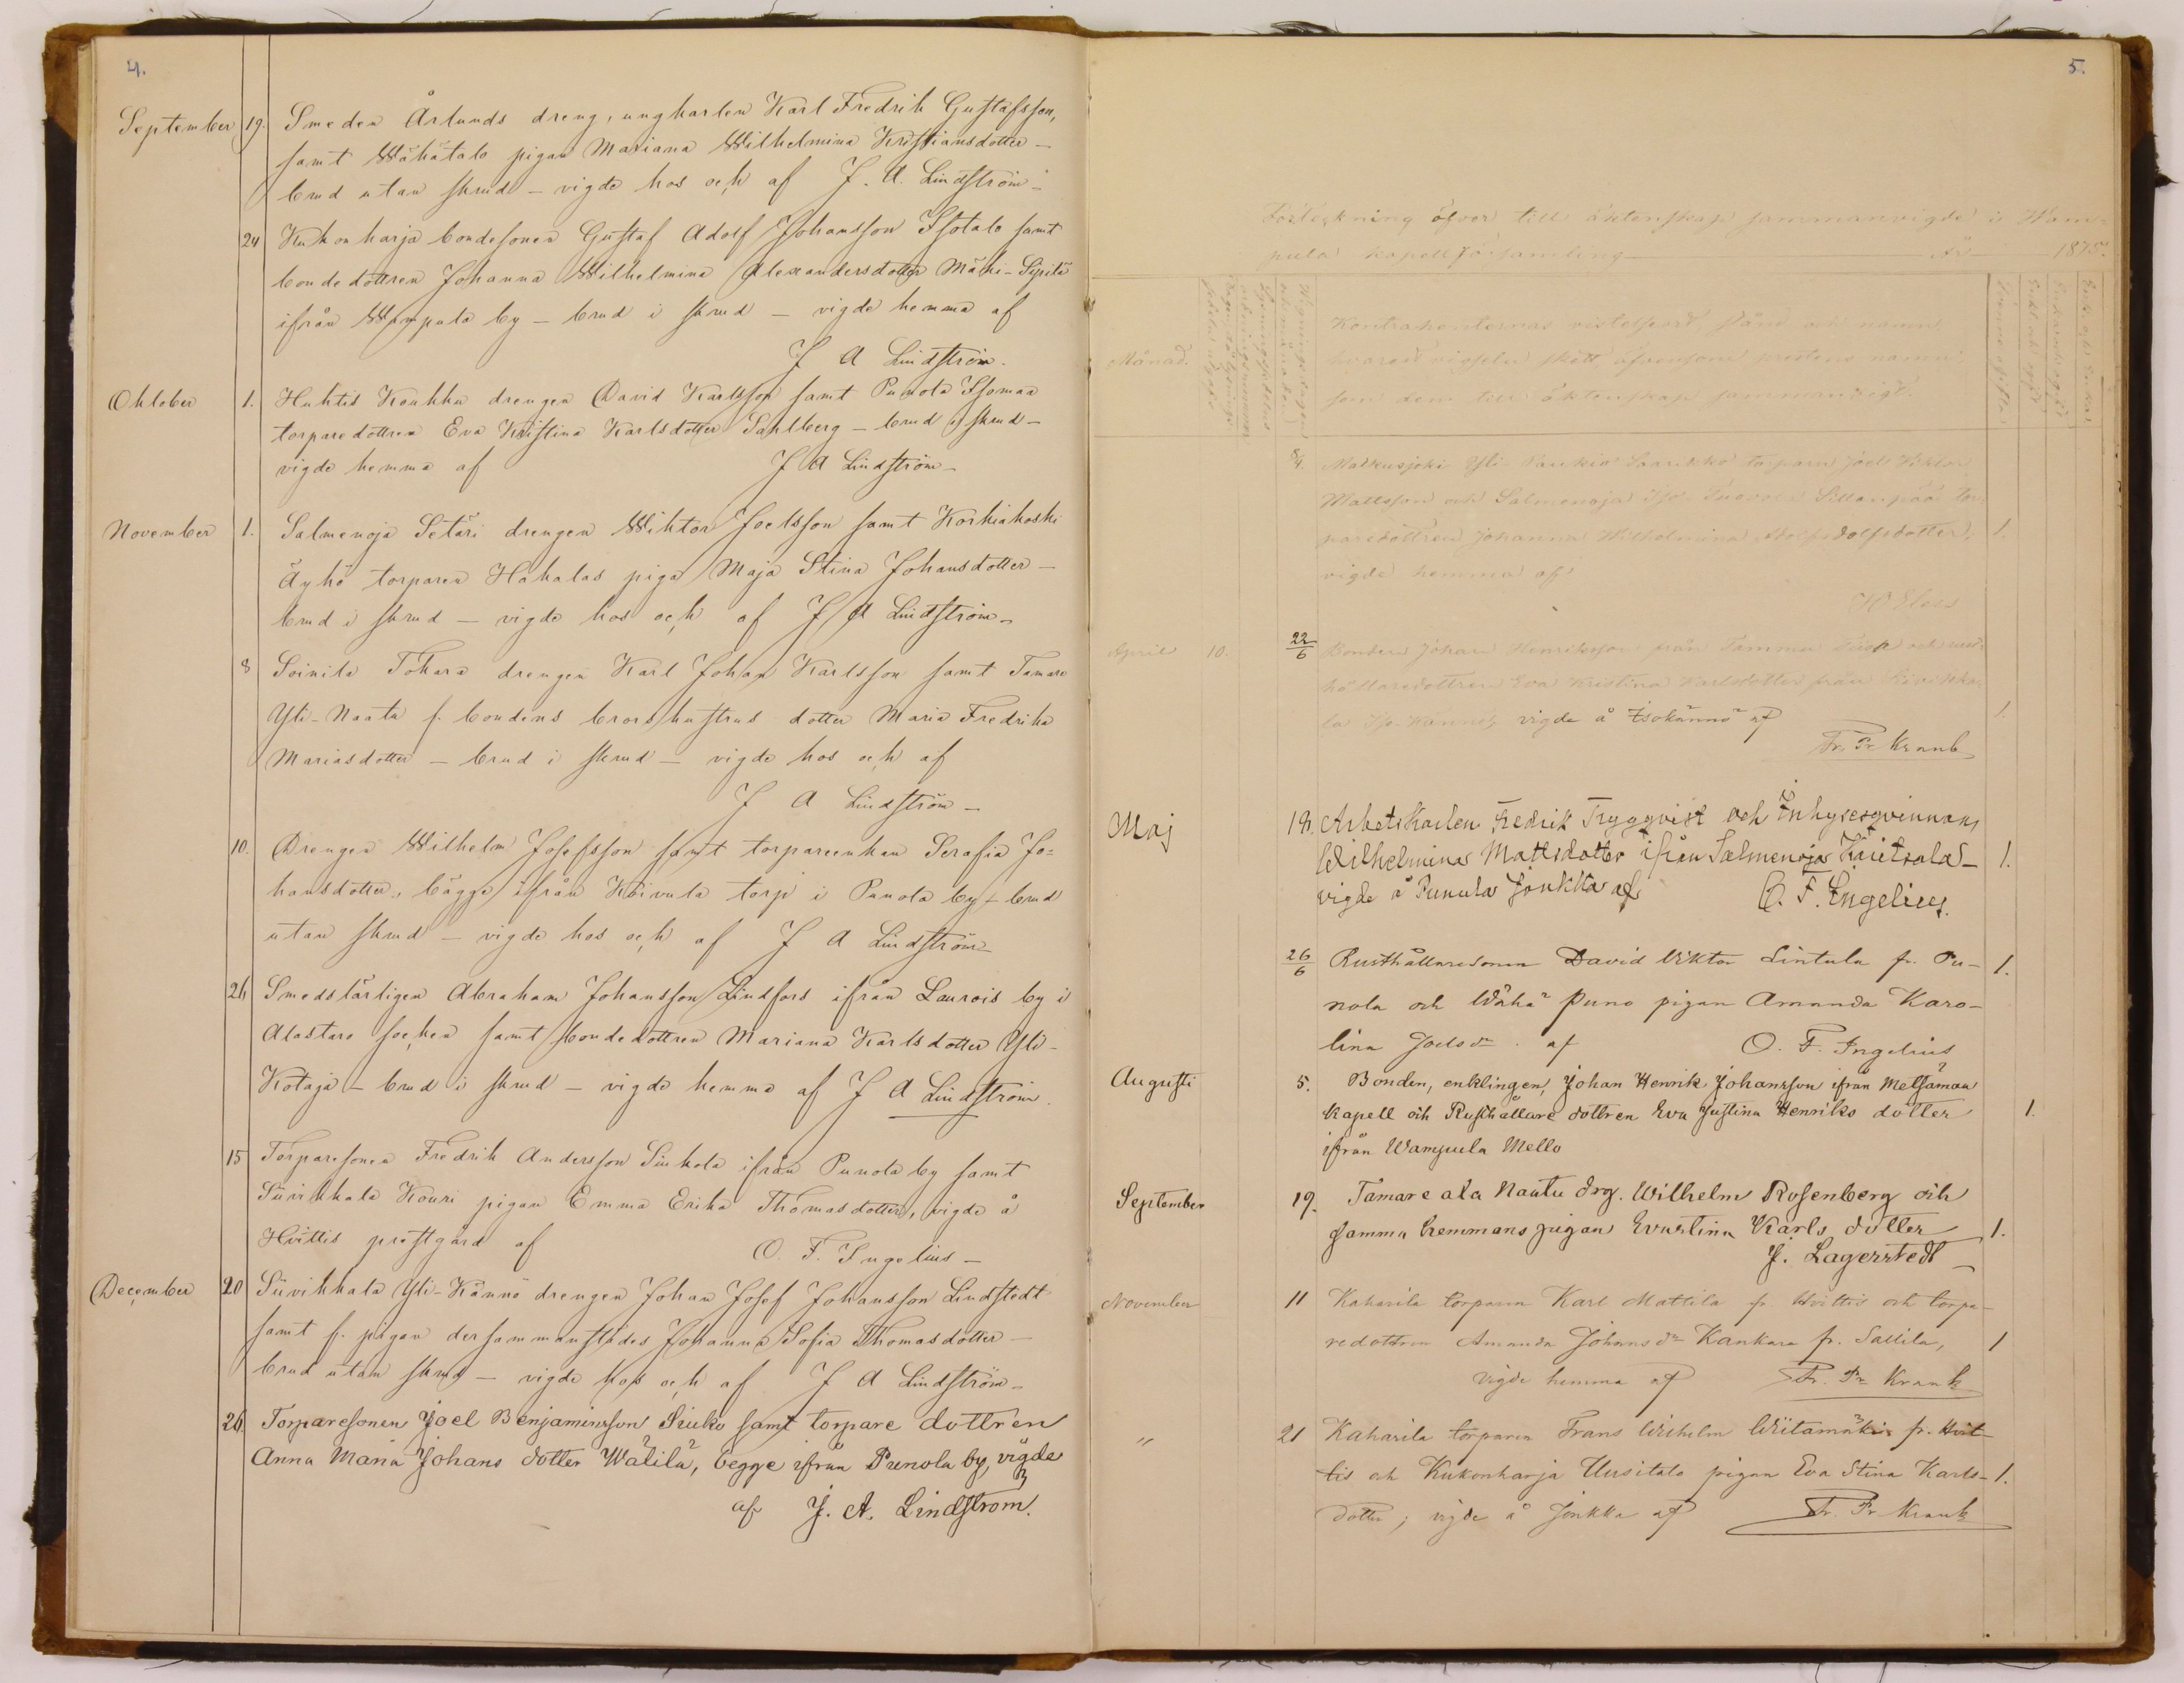 4.
September 19. Smeden Årlunds dreng, ungkarlen Karl Fredrik Gustafsson,
samt Wähätalo pigan Mariana Wilhelmina Kristiansdotter –
brud utan skrud – vigde hos och af J. A. Lindström –
24 Kukonharja bondesonen Gustaf Adolf Johansson Isotalo samt
bondedottren Johanna Wilhelmina Alexandersdotter Mäki-Sipilä
ifrån Wampula by – brud i skrud – vigde hemma af
J A Lindström.
Oktober 1. Huhtis Koukku drengen David Karlsson samt Punola Isomaa
torparedottren Eva Kristina Karlsdotter Sahlberg – brud i skrud –
vigde hemma af J A Lindström –
November 1. Salmenoja Setäri drengen Wiktor Joelsson samt Korkiakoski
Äyhö torparen Hakalas piga Maja Stina Johansdotter –
brud i skrud – vigde hos och af J A Lindström –
8 Soinila Tokara drengen Karl Johan Karlsson samt Tamare
Yli-Naatu f. bondens brors hustrus dotter Maria Fredrika
Mariasdotter – brud i skrud – vigde hos och af
J A Lindström –
10. Drengen Wilhelm Josefsson samt torpareenkan Serafia Jo-
hansdotter, bägge ifrån Koivula torp i Punola by – brud
utan skrud – vigde hos och af J A Lindström –
26 Smedslärlingen Abraham Johansson Lindfors ifrån Laurois by i
Alastaro socken samt bondedottren Mariana Karlsdotter Yli-
Kotaja – brud i skrud – vigde hemma af J A Lindström.
15 Torparesonen Fredrik Andersson Siukola ifrån Punola by samt
Siivikkala Kouri pigan Emma Erika Thomasdotter, vigde å
Hvittis prestgård af O. F. Ingelius –
December 20 Siivikkala Yli-Kännö drengen Johan Josef Johansson Lindstedt
samt f. pigan dersammanstädes Johanna Sofia Thomasdotter –
brud utan skrud – vigde hos och af J A Lindström –
26. Torparesonen Joel Benjaminsson Siuko samt torpare dottren
Anna Maria Johans dotter Wälilä, begge ifrån Punola by, vigde
af J. A. Lindström.
5.
Förteckning öfver till äktenskap sammanvigde i Wam-
pula kapellförsamling År 1875.
Månad.
Kontrahenternas vistelseort, stånd och namn
som dem till äktenskap sammanvigt.
8/4 Matkusjoki Yli Saarikko torparn Joel Viktor
Mattsson och Salmenoja Sillanpää tor-
paredottren Johanna Wilhelmina Adolfsdotter, 1.
vigde hemma af
April 10. 22/6 Bonden Johan Henriksson från Tamma och rust-
hållaredottren Eva Kristina Karlsdotter från Siivikka-
la vigde å Isokännö af 1.
Fr. Fr. Krank
Maj 18. Arbetskarlen Fredrik Tryggvist och Inhysesqvinnan
Wilhelmina Mattsdotter ifrån Salmenoja Kaietsala – 1.
vigde å Punula Jonkka af O. F. Ingelius.
26/6 Rusthållaresonen David Viktor Lintula fr. Pu- 1.
nola och Wähä Puno pigan Amanda Karo-
lina Joelsdr af O. F. Ingelius
Augusti 5. Bonden, enklingen, Johan Henrik Johansson ifrån Metsämaa
Kapell och Rusthållare dottren Eva Justina Henriks dotter 1.
ifrån Wampula Mello
September 19. Tamare ala Naatu drg. Wilhelm Rosenberg och
samma hemmans pigan Evastina Karls dotter 1.
J. Lagerstedt
November 11 Kaharila torparen Karl Mattila fr Hvittis och torpa-
redottren Amanda Johansdr Kankare fr. Sallila, 1
vigde hemma af Fr. Fr. Krank
" 21 Kaharila torparen Frans Wilhelm Wiitamäki fr. Hvit-
tis och Kukonharja Uusitalo pigan Eva Stina Karls- 1.
dotter; vigde å Jonkka af Fr. Fr Krank